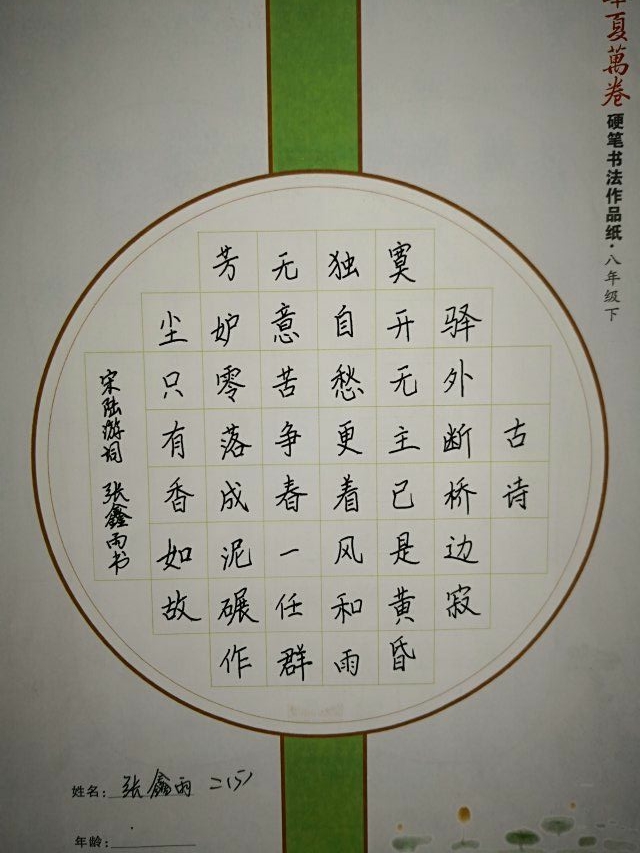 华夏萬卷
硬笔书法作品纸·八年级下
古诗
驿外断桥边寂
寞开无主已是黄昏
独自愁更着风和雨
无意苦争春一任群
芳妒零落成泥碾作
尘只有香如故
宋陆游词 张鑫雨书
姓名: 张鑫雨 二(5)
年龄: